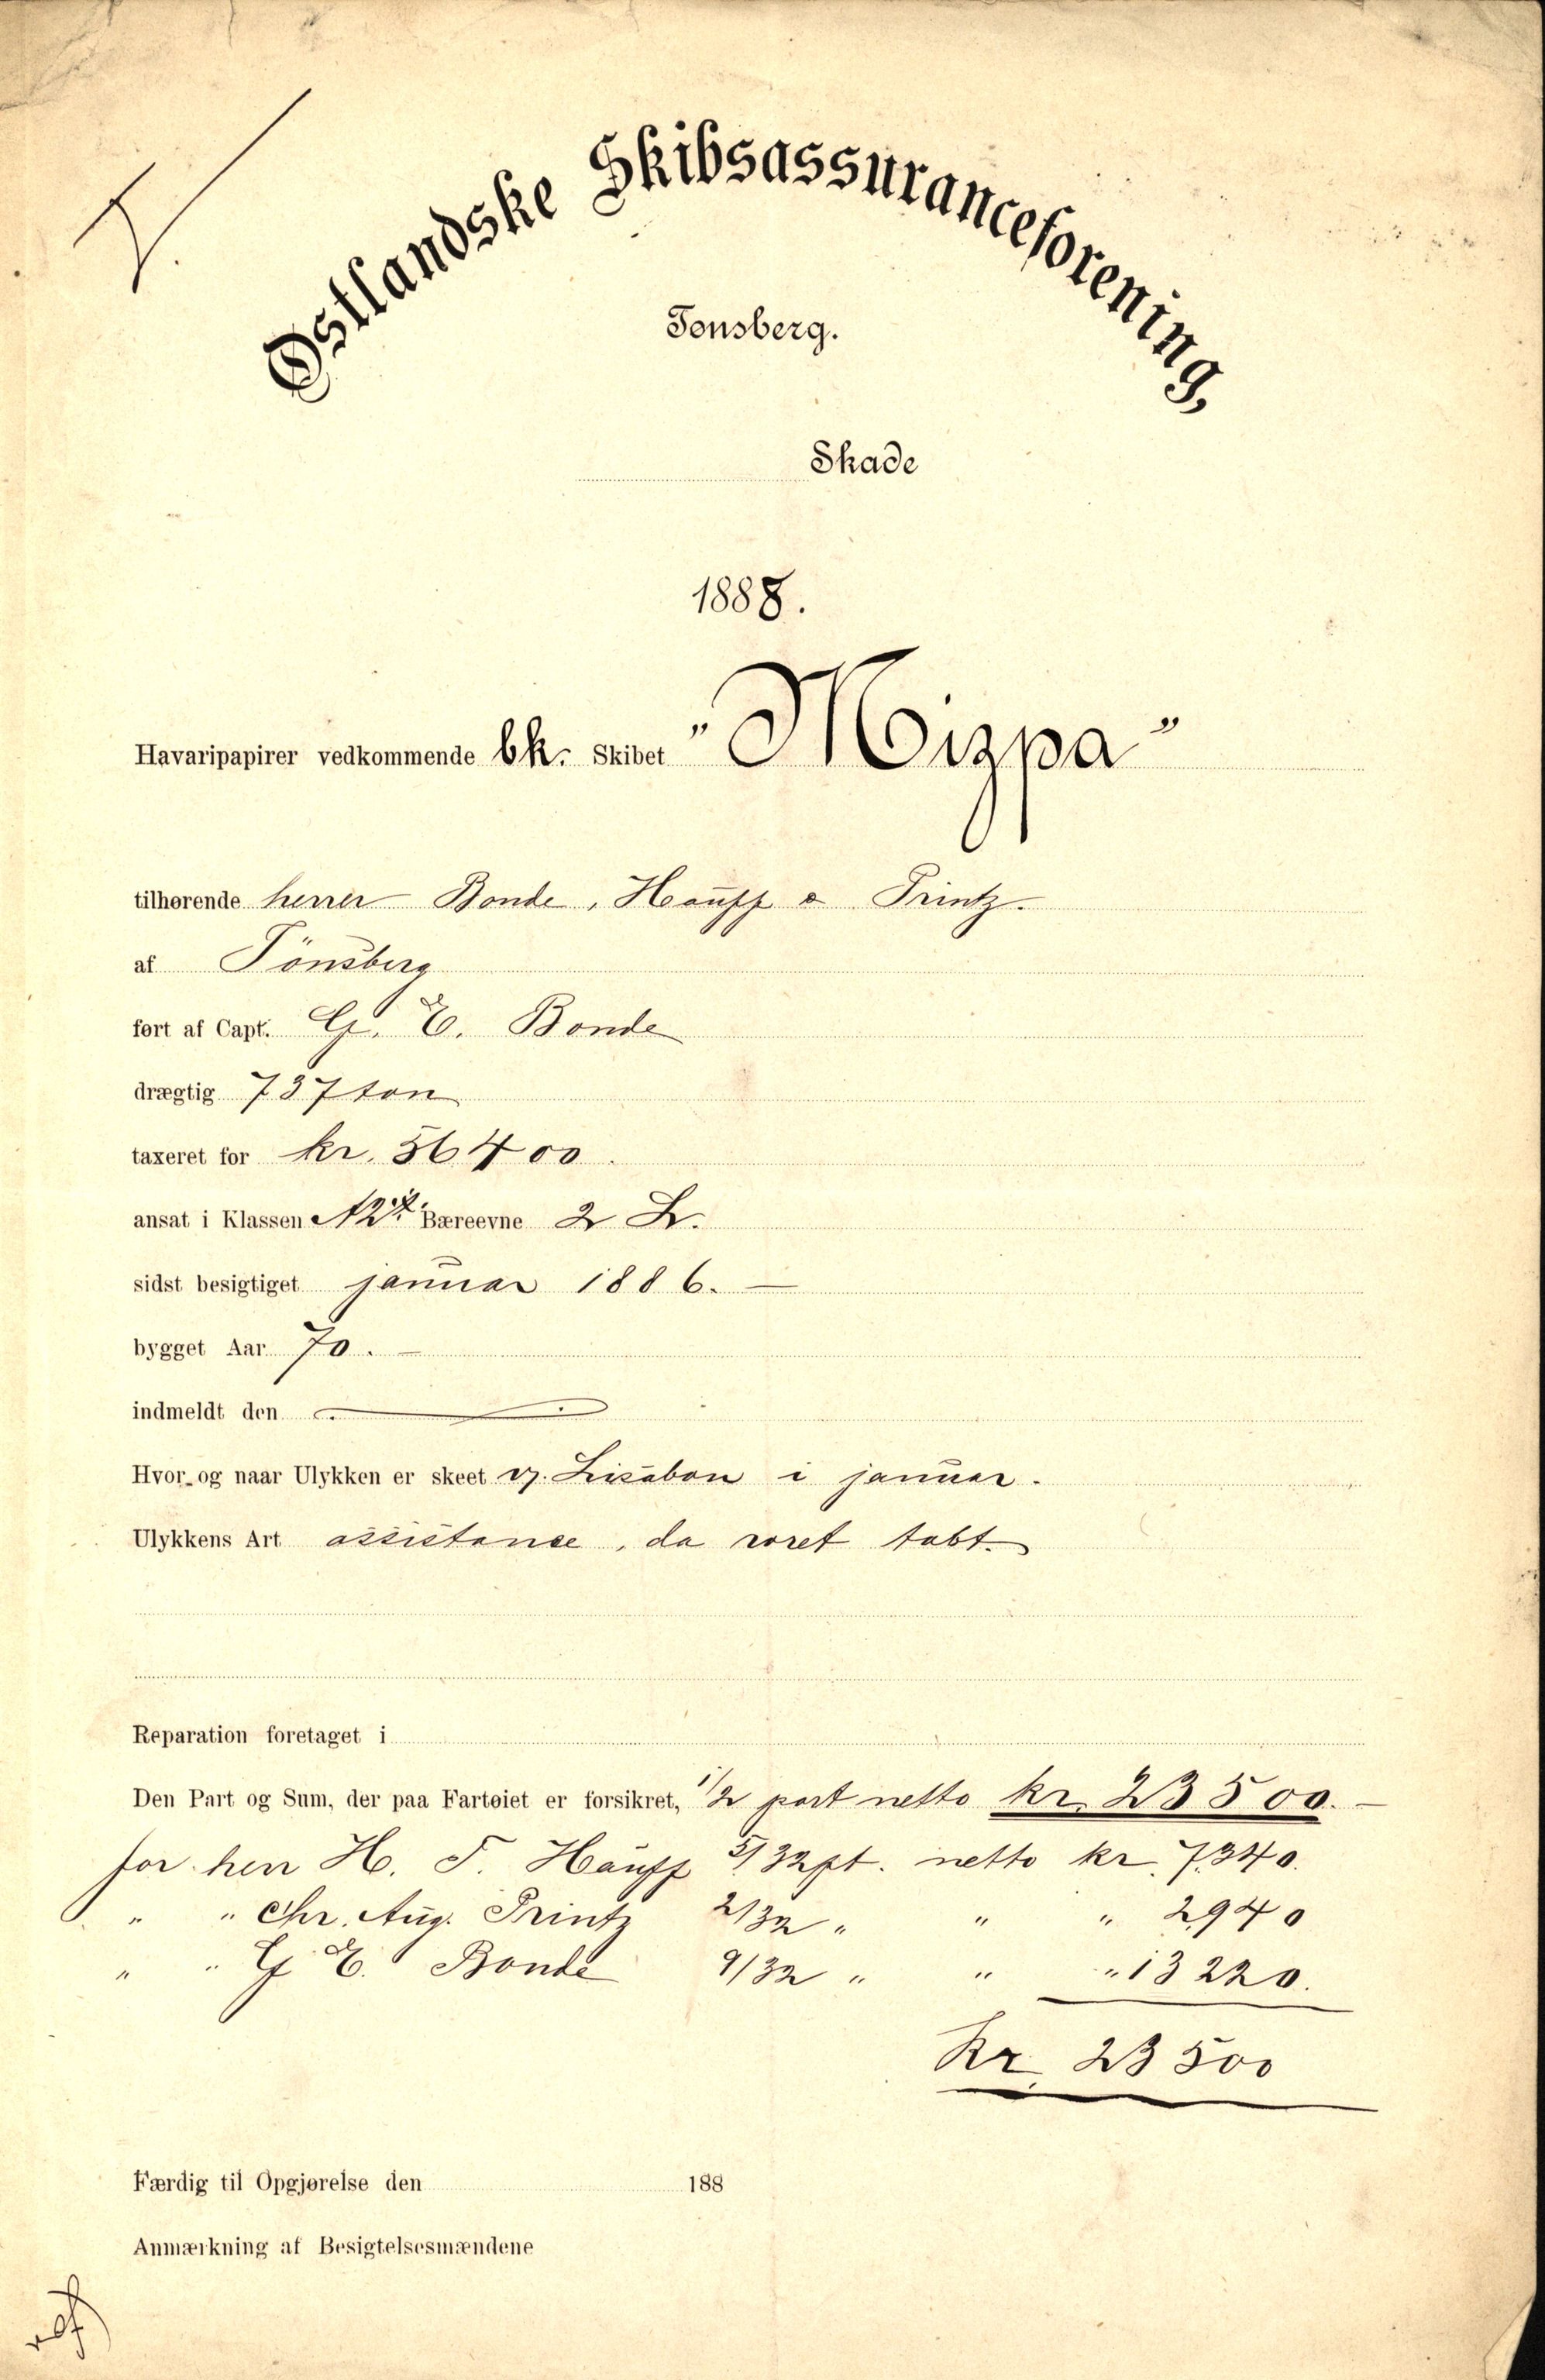 Østlandske Skibsassuranceforening,
Tønsberg.
Skade
1888.
Havaripapirer vedkommende bk. Skibet "Mizpa"
tilhørende herrer Bonde, Hauff & Printz.
af Tönsberg
ført af Capt. G. E. Bonde
drægtig 737 ton
taxeret for kr. 56400.
ansat i Klassen A2 Bæreevne 2 L.
sidst besigtiget januar 1886.—
bygget Aar 70.—
indmeldt den
Hvor og naar Ulykken er skeet v. Lissabon i januar.
Ulykkens Art assistance, da roret tabt.
Reparation foretaget i
Den Part og Sum, der paa Fartøiet er forsikret, 1/2 part netto kr. 23500.—
for herr H. F. Hauff 5/32 pt. netto kr. 7.340.
" " Chr. Aug. Printz 2/32 " " " 2,940
" " G. E. Bonde 9/32 " " " 13 220.
Kr. 23 500
Færdig til Opgjørelse den 188
Anmærkning af Besigtelsesmændene